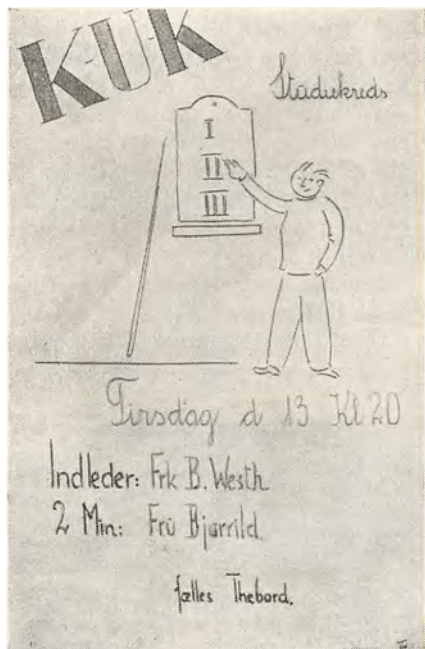 K-U-K
Studiekreds
I
II
III
Tirsdag d 13 Kl 20
Indleder: Frk B. Westh.
2 Min: Frú Bjørrild.
fælles Thebord.